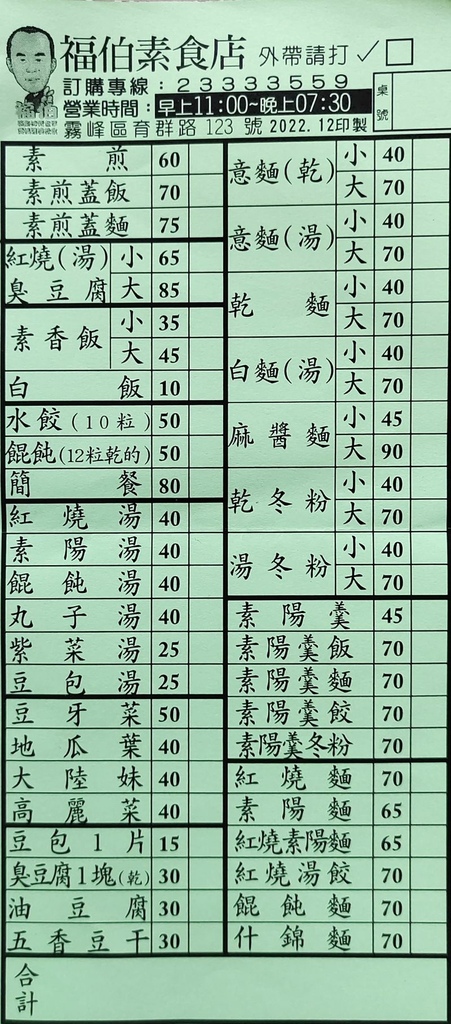 福伯素食店 外帶請打✓□
訂購專線：23333559
營業時間：早上11:00~晚上07:30
霧峰區育群路 123 號 2022.12印製
桌號
素煎 60
素煎蓋飯 70
素煎蓋麵 75
紅燒(湯)臭豆腐 小 65
大 85
素香飯 小 35
大 45
白飯 10
水餃(10粒) 50
餛飩(12粒乾的) 50
簡餐 80
紅燒湯 40
素陽湯 40
餛飩湯 40
丸子湯 40
紫菜湯 25
豆包湯 25
豆牙菜 50
地瓜葉 40
大陸妹 40
高麗菜 40
豆包1片 15
臭豆腐1塊(乾) 30
油豆腐 30
五香豆干 30
意麵(乾) 小 40
大 70
意麵(湯) 小 40
大 70
乾麵 小 40
大 70
白麵(湯) 小 40
大 70
麻醬麵 小 45
大 90
乾冬粉 小 40
大 70
湯冬粉 小 40
大 70
素陽羹 45
素陽羹飯 70
素陽羹麵 70
素陽羹餃 70
素陽羹冬粉 70
紅燒麵 70
素陽麵 65
紅燒素陽麵 65
紅燒湯餃 70
餛飩麵 70
什錦麵 70
合計